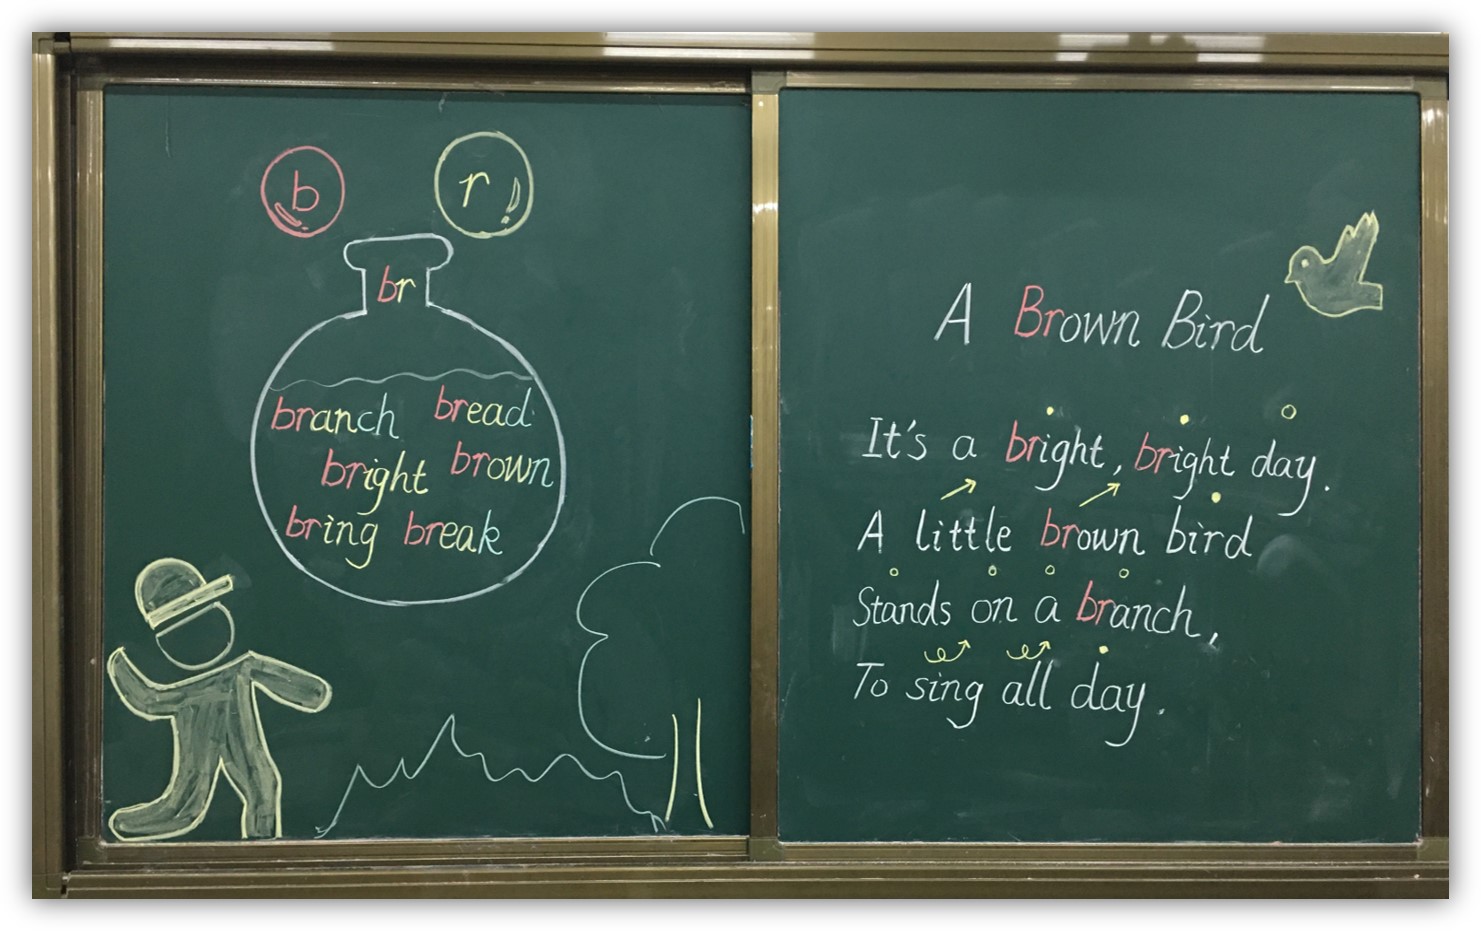 b r
br
branch bread
bright brown
bring break
A Brown Bird
It's a bright, bright day.
A little brown bird
Stands on a branch,
To sing all day.